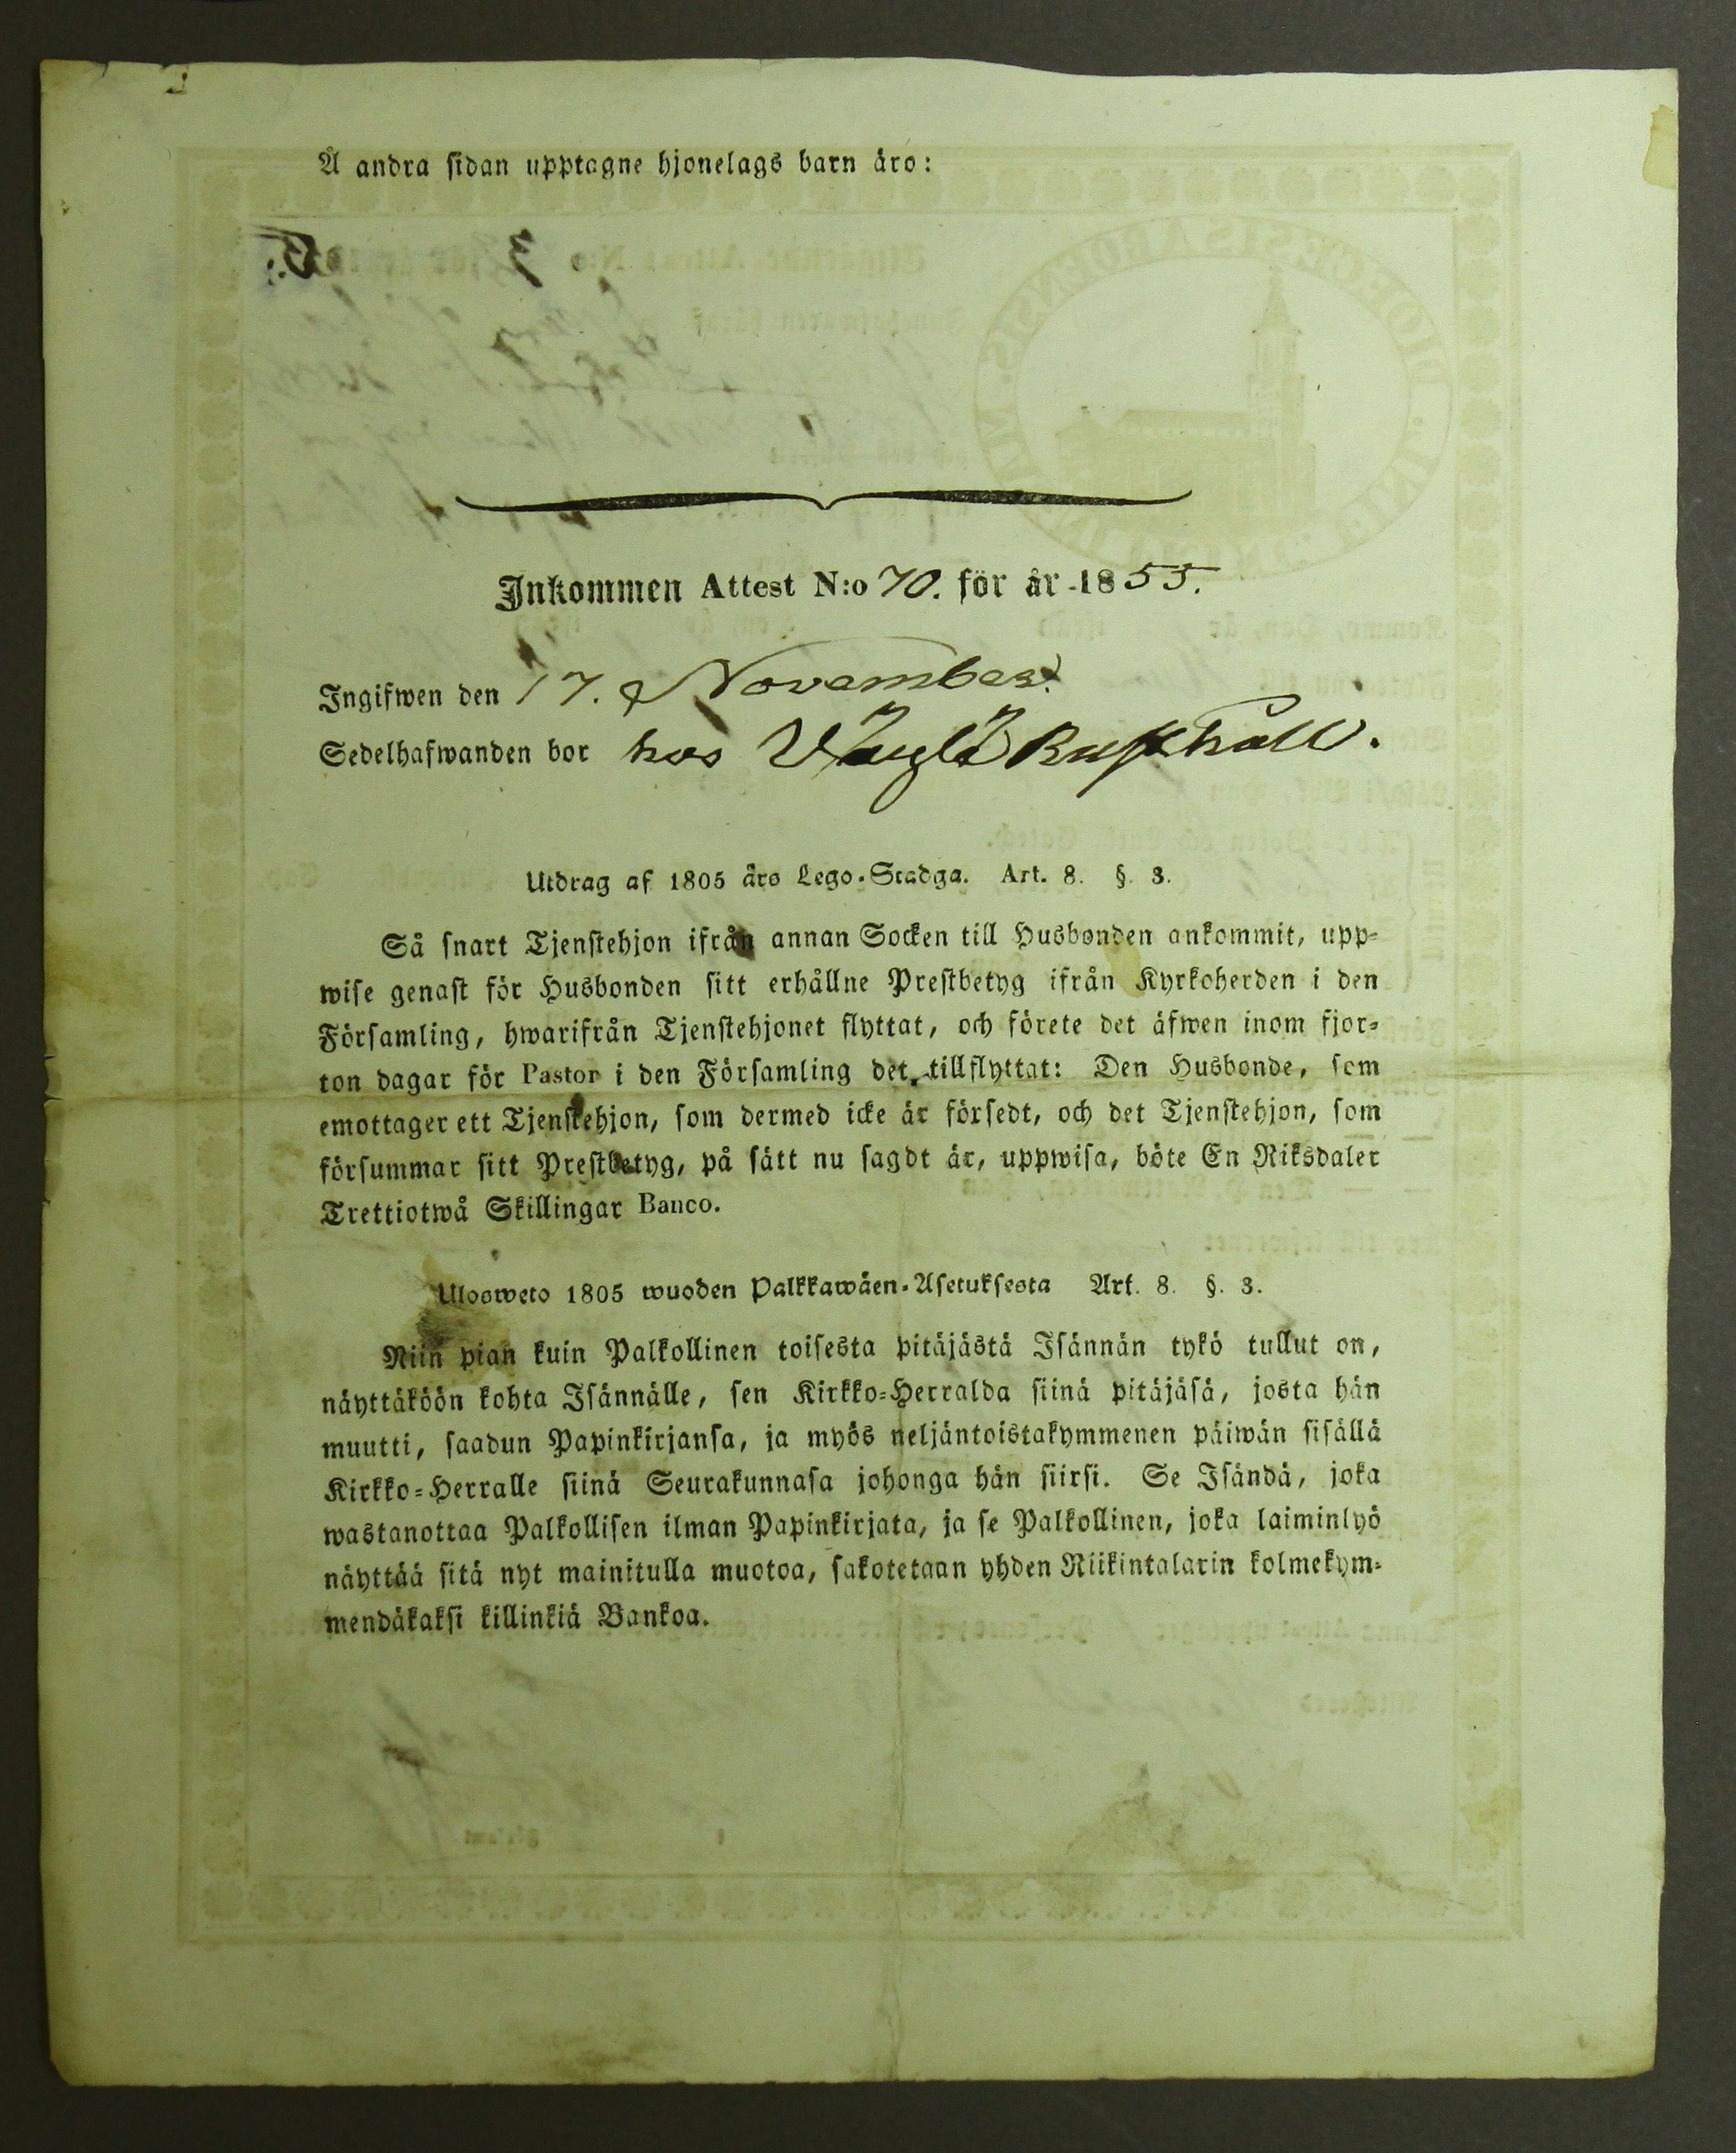 Å andra sidan upptagne hjonelags barn äro:
Inkommen Attest N:o 70. för år 1855.
Ingifwen den 17. November.
Sedelhafwanden bor hos Rusthåll.
Utdrag af 1805 års Lego-Stadga. Art. 8. §. 3.
Så snart Tjenstehjon ifrån annan Socken till Husbonden ankommit, upp-
wise genast för Husbonden sitt erhållne Prestbetyg ifrån Kyrkoherden i den
Församling, hwarifrån Tjenstehjonet flyttat, och förete det äfwen inom fjor-
ton dagar för Pastor i den Församling det tillflyttat: Den Husbonde, som
emottager ett Tjenstehjon, som dermed icke är försedt, och det Tjenstehjon, som
försummar sitt Prestbetyg, på sätt nu sagdt är, uppwisa, böte En Riksdaler
Trettiotwå Skillingar Banco.
Ulosweto 1805 wuoden Palkkawäen-Asetuksesta Art. 8. §. 3.
Niin pian kuin Palkollinen toisesta pitäjästä Isännän tykö tullut on,
näyttäköön kohta Isännälle, sen Kirkko-Herralda siinä pitäjäsä, josta hän
muutti, saadun Papinkirjansa, ja myös neljäntoistakymmenen päiwän sisällä
Kirkko-Herralle siinä Seurakunnasa johonga hän siirsi. Se Isändä, joka
wastanottaa Palkollisen ilman Papinkirjata, ja se Palkollinen, joka laiminlyö
näyttää sitä nyt mainitulla muotoa, sakotetaan yhden Riikintalarin kolmekym-
mendäkaksi killinkiä Bankoa.